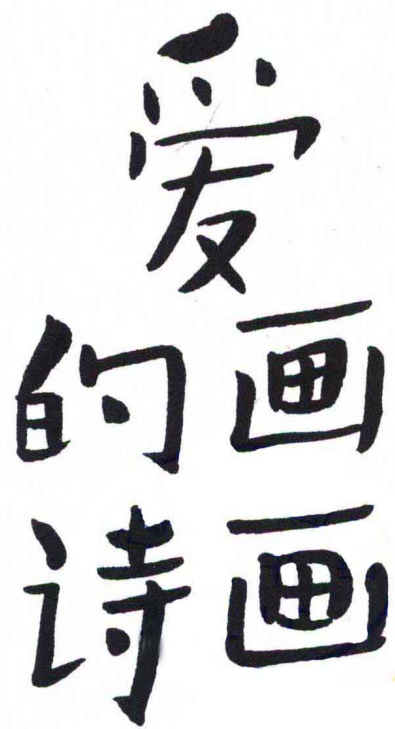 爱
画画
的诗